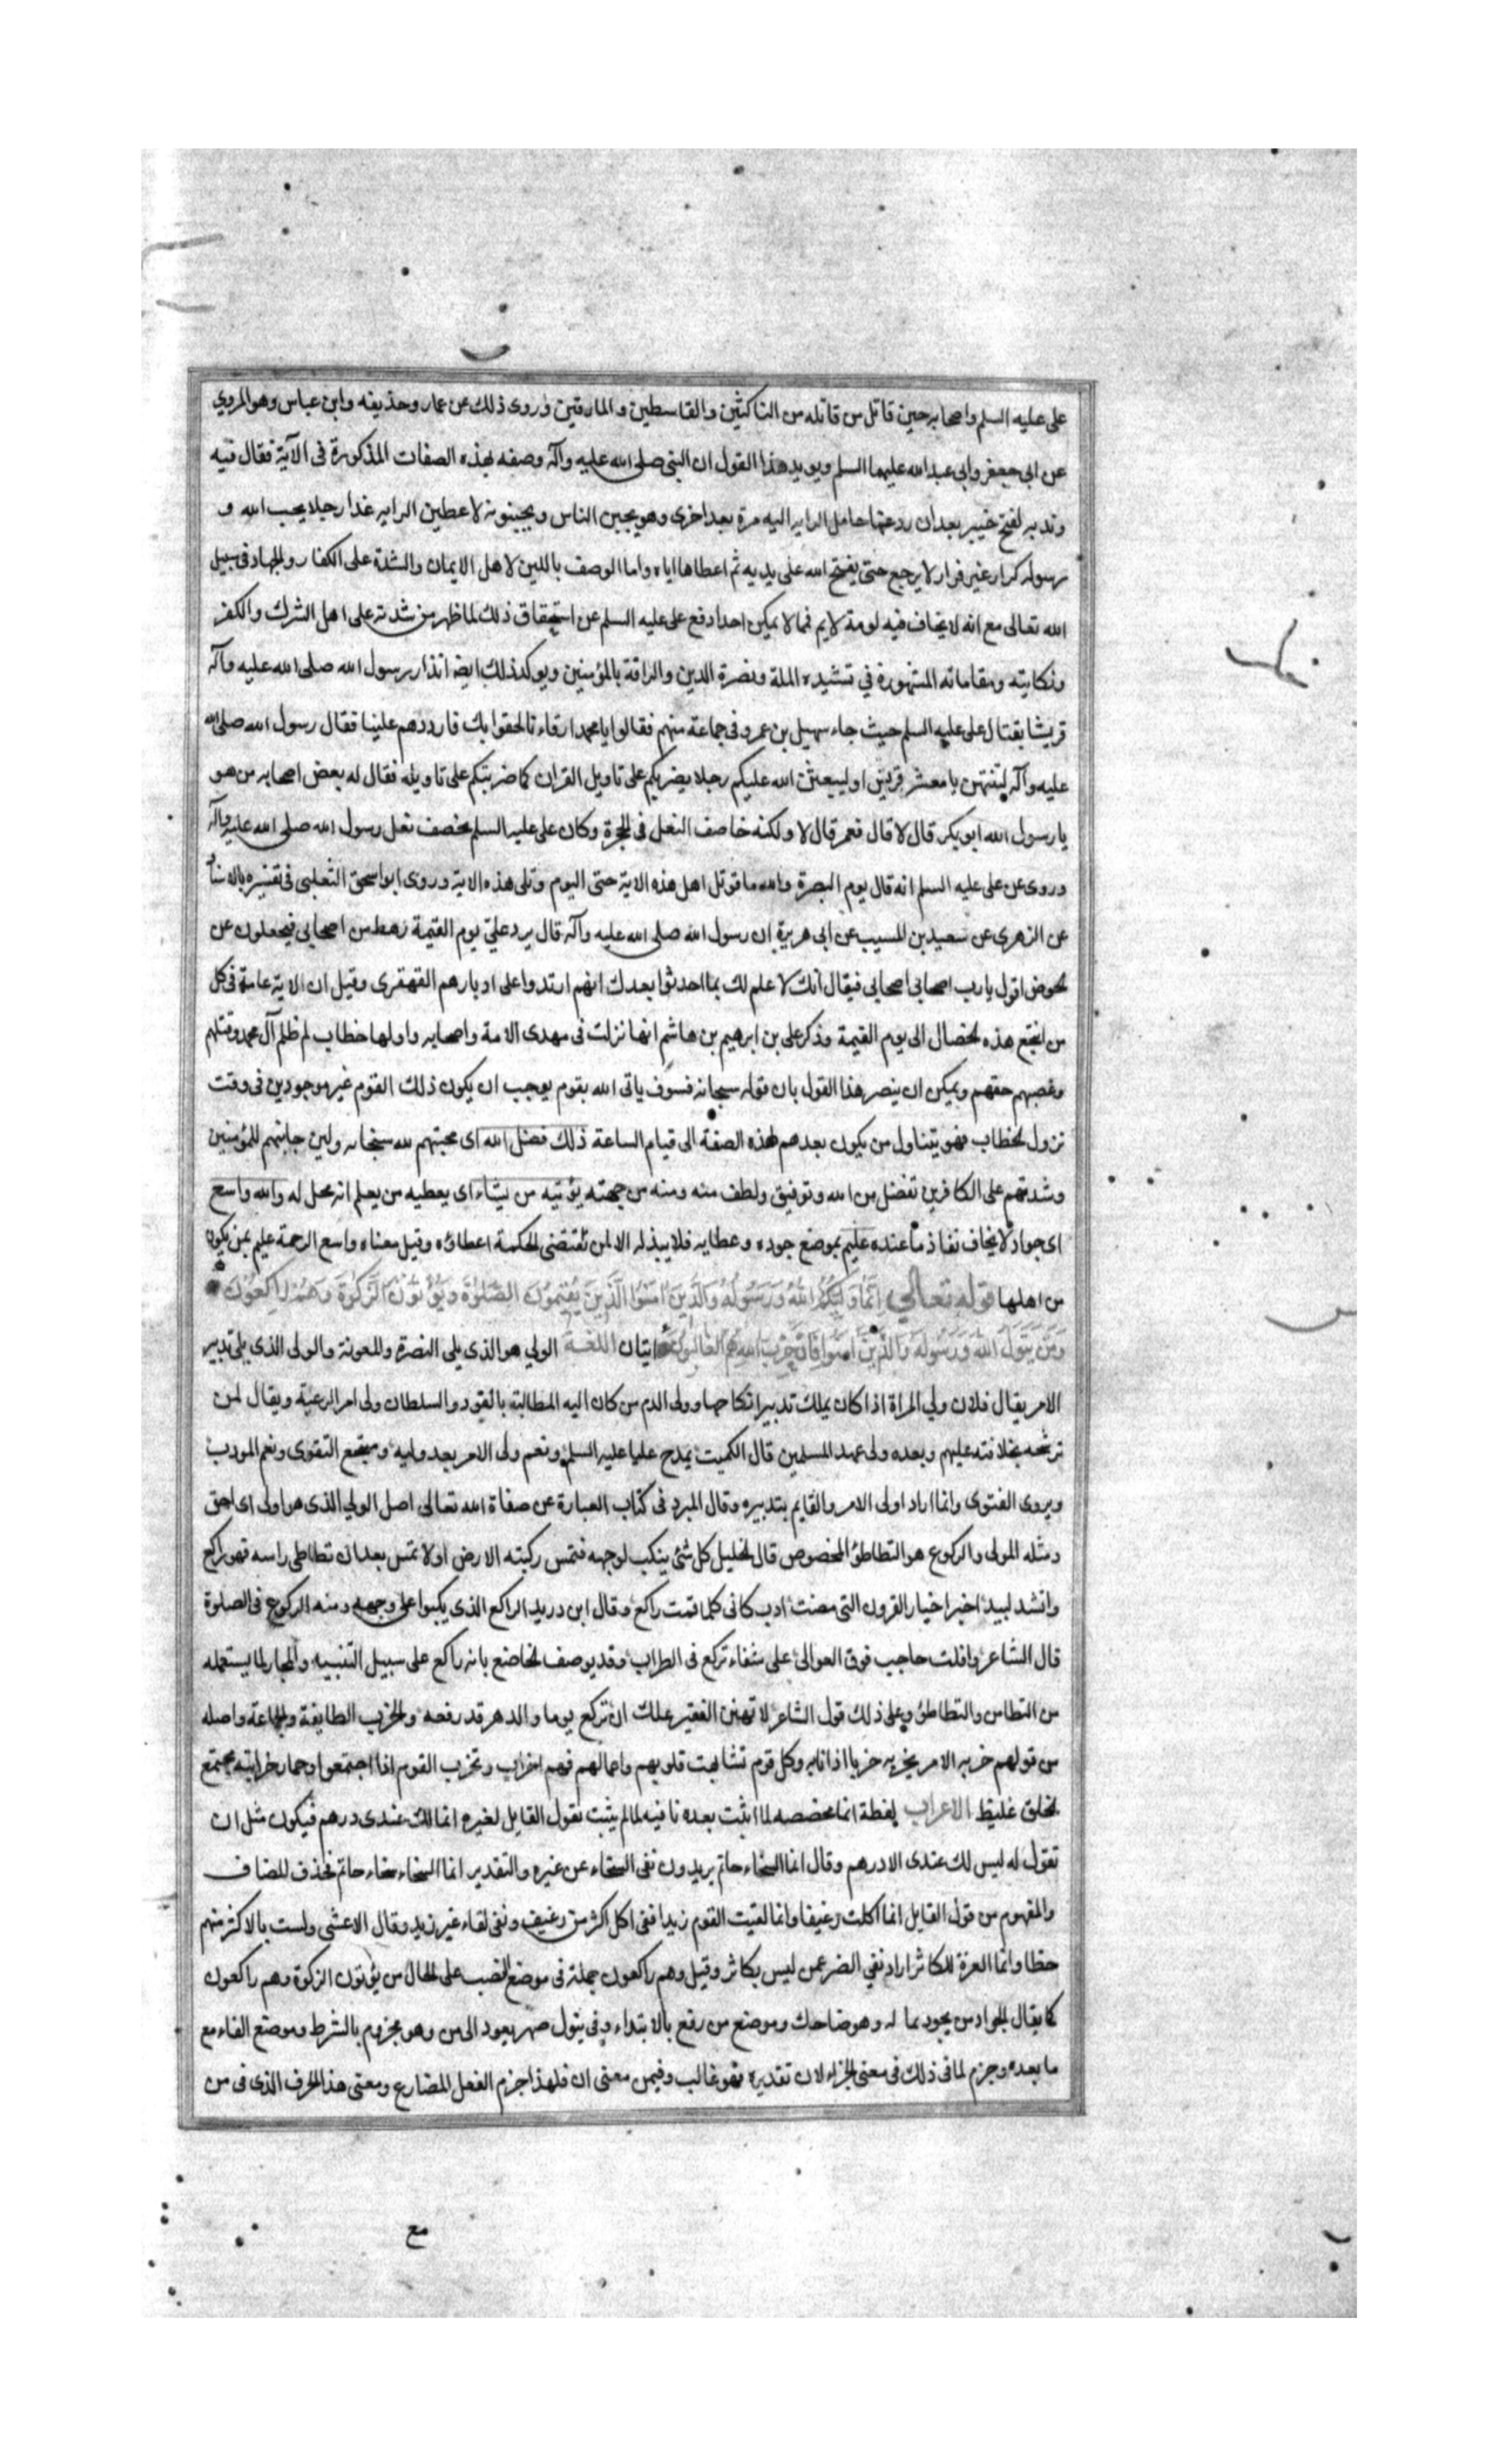 على عليه السلم واصحابه حين قاتل من قاتله من الناكثين والقاسطين والمارقين وروى ذلك عن عمار وحذيفه وابن عباس وهو المروي
عن ابى جعفر وابى عبد الله عليهما السلم ويويد هذا القول ان النبى صلى الله عليه وآله وصفه بهذه الصفات المذكورة فى الآية فقال فيه
وندبه لفتح خيبر بعد أن رد عنها حامل الرايه اليه مرة بعد اخرى وهو يجبن الناس ويجبنونه لاعطين الرايه غدا رجلا يحب الله و
رسوله كرار غير فرار لا يرجع حتى يفتح الله على يديه ثم اعطاها اياه واما الوصف باللين لاهل الايمان والشدة على الكفار والجهاد فى سبيل
الله تعالى مع انه لا يخاف فيه لومة لايم فما لا يمكن احدا دفع على عليه السلم عن استحقاق ذلك لما ظهر من شدته على اهل الشرك والكفر
ونكايته ومقاماته المشهورة في تشييده الملة ونصرة الدين والرافة بالمؤمنين ويوكد ذلك ايضا انذار رسول الله صلى الله عليه وآله
قريشا بقتال على عليه السلم حيث جاء سهيل بن عمرو فى جماعة منهم فقالوا يا محمد ارقاءنا لحقوا بك فارددهم علينا فقال رسول الله صلى الله
عليه وآله لتنتهن يا معشر قريش او ليبعثن الله عليكم رجلا يضربكم على تاويل القران كما ضربتكم على تاويله فقال له بعض اصحابه من هو
يا رسول الله ابو بكر قال لا قال فعمر قال لا ولكنه خاصف النعل فى الحجرة وكان على عليه السلم يخصف نعل رسول الله صلى الله عليه وآله
وروى عن على عليه السلم انه قال يوم البصرة والله ما قوتل اهل هذه الاية حتى اليوم وتلى هذه الاية وروى ابو اسحق الثعلبى فى تفسيره بالاسناد
عن الزهرى عن سعيد بن المسيب عن ابى هريرة ان رسول الله صلى الله عليه وآله قال يرد علىّ يوم القيمة رهط من اصحابى فيجعلون عن
لحوض اقول يا رب اصحابى اصحابى فيقال انك لا علم لك بما احدثوا بعدك انهم ارتدوا على ادبارهم القهقرى وقيل ان الاية عامة فى كل
من اجتمع هذه لخصال الى يوم القيمة وذكر على بن ابرهيم بن هاشم انها نزلت فى مهدى الامة واصحابه واولها خطاب لم ظلم آل محمد وقتلهم
وغصبهم حقهم ويمكن ان ينصر هذا القول بان قوله سبحانه فسوف ياتى الله بقوم يوجب ان يكون ذلك القوم غير موجودين فى وقت
نزول لخطاب فهو يتناول من يكون بعدهم بهذه الصفة الى قيام الساعة ذلك فضل الله اى محبتهم لله سبحانه ولين جانبهم للمؤمنين
وشدتهم على الكافرين تفضل من الله وتوفيق ولطف منه ومنه من جهته يؤتيه من يشاء اى يعطيه من يعلم انه محل له والله واسع
اى جواد لا يخاف نفاذ ما عنده عليم بموضع جوده وعطايه فلا يبذله الا لمن تقتضى الحكمة اعطاؤه وقيل معناه واسع الرحمة عليم بمن يكون
من اهلها قوله تعالى انّما وليكم الله ورسوله والّذين امنوا الّذين يقيمون الصّلوة ويؤتون الزّكوة وهم راكعون
ومن يتول الله ورسوله والذين امنوا فان حزب الله هم الغالبون ايتان اللغة الولي هو الذى يلى النصرة والمعونة والولى الذى يلى تدبير
الامر يقال فلان ولي المراة اذا كان يملك تدبير انكاحها وولى الدم من كان اليه المطالبة بالقود والسلطان ولى امر الرعية ويقال لمن
ترشحه بخلافته عليهم وبعده ولى عهد المسلمين قال الكميت يمدح عليا عليه السلم ونعم ولى الامر بعد وليه ومنتجع التقوى ونعم المودب
ويروى الفتوى وانما اراد اولى الامر والقايم بتدبيره وقال المبرد فى كتاب العبارة عن صفاة الله تعالى اصل الولي الذى هو اولى اى احق
ومثله المولى والركوع هو التطاطؤ المخصوص قال لخليل كل شئ ينكب لوجهه فتمس ركبته الارض او لا تمس بعد ان تطاطى راسه فهو راكع
وانشد لبيد اخبر اخبار القرون التى مضت ادب كانى كلما قمت راكع وقال ابن دريد الراكع الذى يكبوا على وجهه ومنه الركوع فى الصلوة
قال الشاعر وافلت حاجب فوق العوالى على شفاء تركع فى الظراب وقد يوصف لخاضع بانه راكع على سبيل التشبيه والمجاز لما يستعمله
من التطامن والتطاطؤ وعلى ذلك قول الشاعر لا تهنن الفقير علك ان تركع يوما والدهر قد رفعه والحزب الطايفة والجماعة واصله
من قولهم حزبه الامر يحزبه حزبا اذا نابه وكل قوم تشابهت قلوبهم واعمالهم فهم احزاب وتحزب القوم اذا اجتمعوا وحمار حزابية مجتمع
لخلق غليظ الاعراب لفظة انما مخصصه لما اثبت بعده نافيه لما لم يثبت تقول القايل لغيره انما لك عندى درهم فيكون مثل ان
تقول له ليس لك عندى الا درهم وقال انما السخاء حاتم يريدون نفى السخاء عن غيره والتقدير انما السخاء سخاء حاتم فحذف المضاف
والمفهوم من قول القايل انما اكلت رغيفا وانما لقيت القوم زيدا فنى اكل اكثر من رغيف ونفى لقاء غير زيد وقال الاعشى ولست بالاكثر منهم
حظا وانما العزة للكاثر اراد نفي العز عمن ليس بكاثر وقيل وهم راكعون جملة فى موضع النصب على الحال من يؤتون الزكوة وهم راكعون
كما يقال الجواد من يجود بما له وهو ضاحك وموضع من رفع بالابتداء وفى يتول ضمير يعود الى من وهو مجزوم بالشرط وموضع الفاء مع
ما بعده وجزم لما فى ذلك فى معنى الجزاء لان تقديره فهو غالب وفيمن معنى ان فلهذا جزم الفعل المضارع ومعنى هذا الحرف الذى فى من
مع